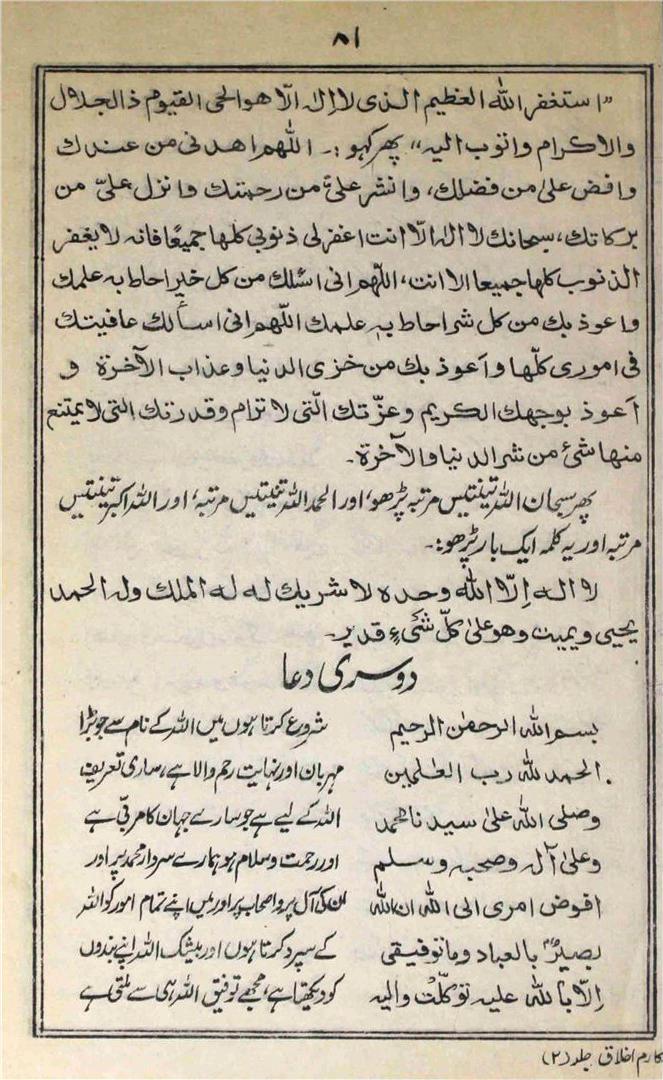 ۸۱
"استغفر الله العظیم الذی لا اِلٰہ الّا ھو الحی القیوم ذالجلال
والاکرام واتوب الیہ" پھر کہو :۔ اللّٰھم اھدنی من عندك
وافض علیٰ من فضلك، وانشر علیٰ من رحمتك وانزل علیّ من
برکاتك، سبحانك لا الٰہ الّا انت اغفرلی ذنوبی کلھا جمیعًا فانہ لا یغفر
الذنوب کلھا جمیعا الا انت، اللّٰھم انی اسئلك من کل خیر احاط بہ علمك
واعوذ بك من کل شر احاط بہٖ علمك اللّٰھم انی اسألك عافیتك
فی اموری کلّھا واَعوذ بك من خزی الدنیا وعذاب الآخرۃ و
اَعوذ بوجھك الکریم وعزّتك الّتی لا ترام وقدرتك التی لا یمتنع
منھا شئ من شر الدنیا والآخرۃ۔
پھر سبحان اللہ تینتیس مرتبہ پڑھو، اور الحمد اللہ تینتیس مرتبہ، اور اللہ اکبر تینتیس
مرتبہ اور یہ کلمہ ایک بار پڑھو:۔
لا الہ اِلّا اللّٰہ وحدہ لا شریك لہ لہ الملك ولہ الحمد
یحیی ویمیت وھو علیٰ کلّ شَئیءٍ قدیر۔
دوسری دعا
بسم اللہ الرحمٰن الرحیم شروع کرتا ہوں میں اللہ کے نام سے جو بڑا
الحمد للہ رب العٰلمین مہربان اور نہایت رحم والا ہے، ساری تعریف
وصلی اللہ علیٰ سیدنا محمد اللہ کے لیے ہے جو سارے جہان کا مربّی ہے
وعلیٰ آلہ وصحبہ وسلم اور رحمت و سلام ہو ہمارے سردار محمد پر اور
افوض امری الی اللہ ان اللہ ان کی آل پر و اصحاب پر اور میں اپنے تمام امور کو اللہ
بصیرٌ بالعباد وما توفیقی کے سپرد کرتا ہوں اور بیشک اللہ اپنے بندوں
اِلّا باللہ علیہ توکّلتُ والیہ کو دیکھتا ہے، مجھے توفیق اللہ ہی سے ملتی ہے
مکارم اخلاق جلد (۲)